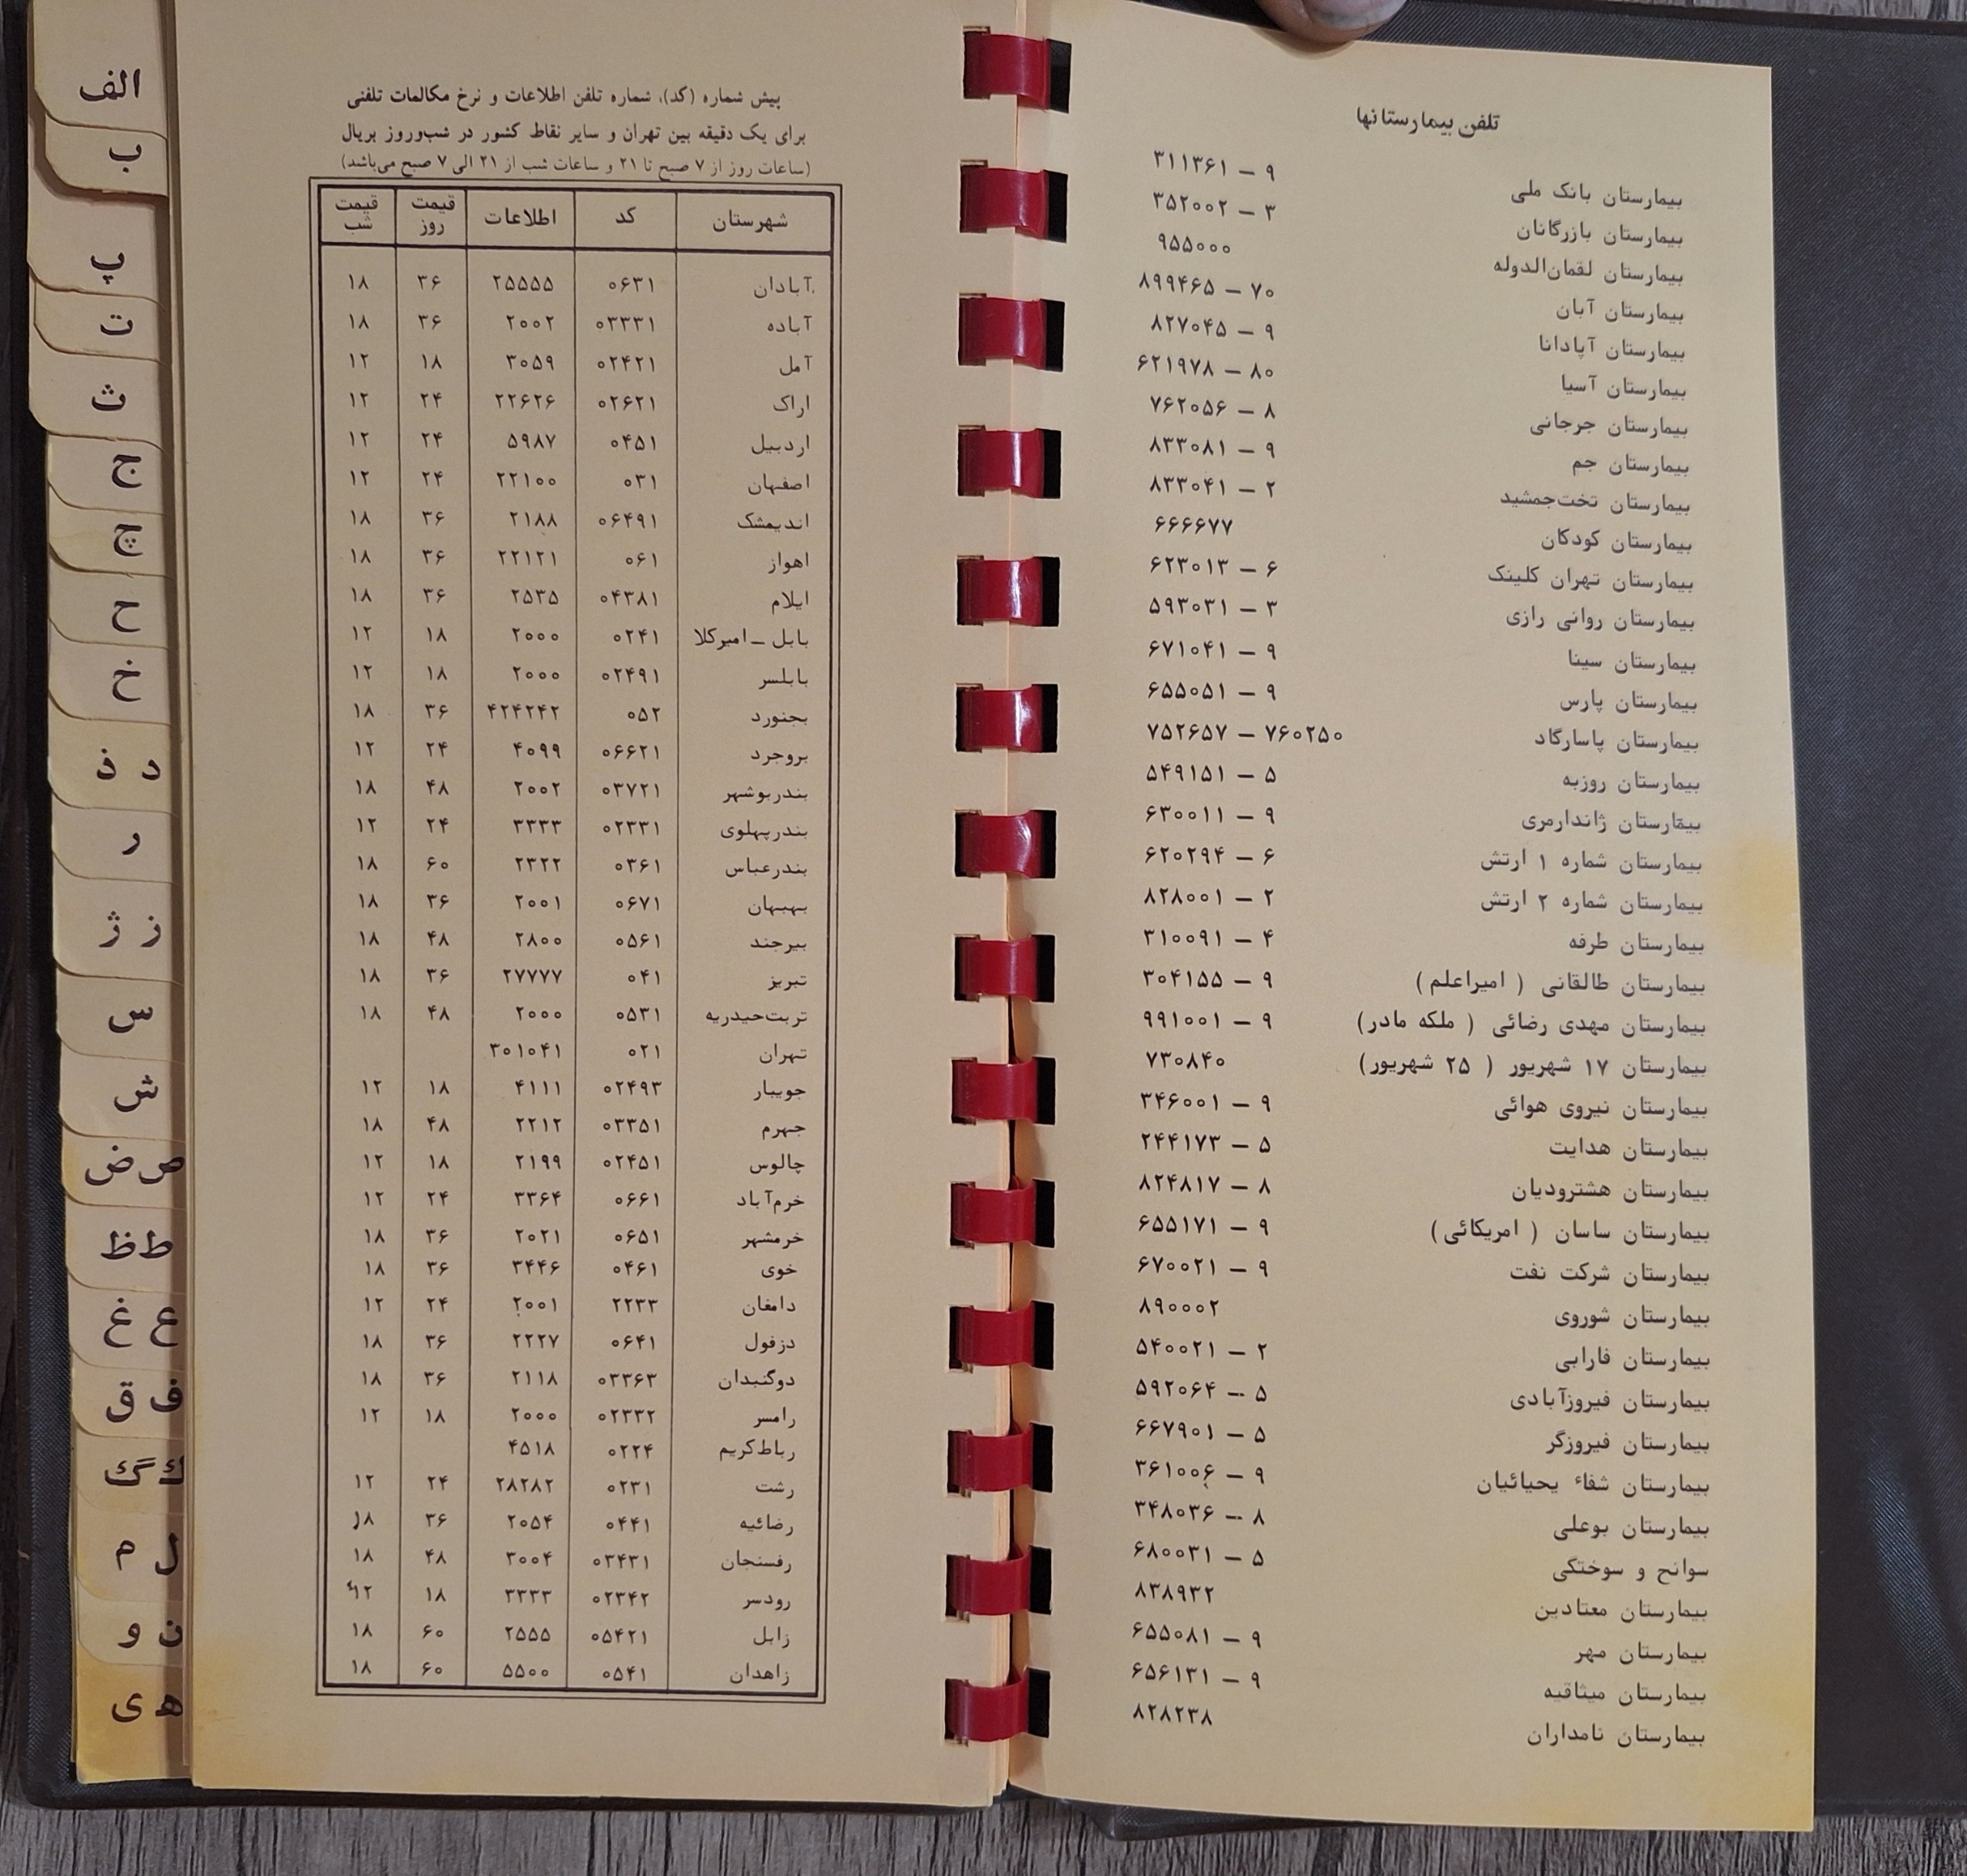 تلفن بیمارستانها
بیمارستان بانک ملی ۳۱۱۳۶۱ – ۹
بیمارستان بازرگانان ۳۵۲۰۰۲ – ۳
بیمارستان لقمان‌الدوله ۹۵۵۰۰۰
بیمارستان آبان ۸۹۹۴۶۵ – ۷۰
بیمارستان آپادانا ۸۲۷۰۴۵ – ۹
بیمارستان آسیا ۶۲۱۹۷۸ – ۸۰
بیمارستان جرجانی ۷۶۲۰۵۶ – ۸
بیمارستان جم ۸۳۳۰۸۱ – ۹
بیمارستان تخت‌جمشید ۸۳۳۰۴۱ – ۲
بیمارستان کودکان ۶۶۶۶۷۷
بیمارستان تهران کلینک ۶۲۳۰۱۳ – ۶
بیمارستان روانی رازی ۵۹۳۰۳۱ – ۳
بیمارستان سینا ۶۷۱۰۴۱ – ۹
بیمارستان پارس ۶۵۵۰۵۱ – ۹
بیمارستان پاسارگاد ۷۵۲۶۵۷ – ۷۶۰۲۵۰
بیمارستان روزبه ۵۴۹۱۵۱ – ۵
بیمارستان ژاندارمری ۶۳۰۰۱۱ – ۹
بیمارستان شماره ۱ ارتش ۶۲۰۲۹۴ – ۶
بیمارستان شماره ۲ ارتش ۸۲۸۰۰۱ – ۲
بیمارستان طرفه ۳۱۰۰۹۱ – ۴
بیمارستان طالقانی ( امیراعلم ) ۳۰۴۱۵۵ – ۹
بیمارستان مهدی رضائی ( ملکه مادر ) ۹۹۱۰۰۱ – ۹
بیمارستان ۱۷ شهریور ( ۲۵ شهریور ) ۷۳۰۸۴۰
بیمارستان نیروی هوائی ۳۴۶۰۰۱ – ۹
بیمارستان هدایت ۲۴۴۱۷۳ – ۵
بیمارستان هشترودیان ۸۲۴۸۱۷ – ۸
بیمارستان ساسان ( امریکائی ) ۶۵۵۱۷۱ – ۹
بیمارستان شرکت نفت ۶۷۰۰۲۱ – ۹
بیمارستان شوروی ۸۹۰۰۰۲
بیمارستان فارابی ۵۴۰۰۲۱ – ۲
بیمارستان فیروزآبادی ۵۹۲۰۶۴ – ۵
بیمارستان فیروزگر ۶۶۷۹۰۱ – ۵
بیمارستان شفاء یحیائیان ۳۶۱۰۰۶ – ۹
بیمارستان بوعلی ۳۴۸۰۳۶ – ۸
سوانح و سوختگی ۶۸۰۰۳۱ – ۵
بیمارستان معتادین ۸۳۸۹۳۲
بیمارستان مهر ۶۵۵۰۸۱ – ۹
بیمارستان میثاقیه ۶۵۶۱۳۱ – ۹
بیمارستان نامداران ۸۲۸۲۳۸
پیش شماره (کد)، شماره تلفن اطلاعات و نرخ مکالمات تلفنی
برای یک دقیقه بین تهران و سایر نقاط کشور در شب‌وروز بریال
(ساعات روز از ۷ صبح تا ۲۱ و ساعات شب از ۲۱ الی ۷ صبح می‌باشد)
شهرستان کد اطلاعات قیمت روز قیمت شب
آبادان ۰۶۳۱ ۲۵۵۵۵ ۳۶ ۱۸
آباده ۰۳۳۳۱ ۲۰۰۲ ۳۶ ۱۸
آمل ۰۲۴۲۱ ۳۰۵۹ ۱۸ ۱۲
اراک ۰۲۶۲۱ ۲۲۶۲۶ ۲۴ ۱۲
اردبیل ۰۴۵۱ ۵۹۸۷ ۲۴ ۱۲
اصفهان ۰۳۱ ۲۲۱۰۰ ۲۴ ۱۲
اندیمشک ۰۶۴۹۱ ۲۱۸۸ ۳۶ ۱۸
اهواز ۰۶۱ ۲۲۱۲۱ ۳۶ ۱۸
ایلام ۰۴۳۸۱ ۲۵۳۵ ۳۶ ۱۸
بابل – امیرکلا ۰۲۴۱ ۲۰۰۰ ۱۸ ۱۲
بابلسر ۰۲۴۹۱ ۲۰۰۰ ۱۸ ۱۲
بجنورد ۰۵۲ ۴۲۴۲۴۲ ۳۶ ۱۸
بروجرد ۰۶۶۲۱ ۴۰۹۹ ۲۴ ۱۲
بندربوشهر ۰۳۷۲۱ ۲۰۰۲ ۴۸ ۱۸
بندرپهلوی ۰۲۳۳۱ ۳۳۳۳ ۲۴ ۱۲
بندرعباس ۰۳۶۱ ۲۳۲۲ ۶۰ ۱۸
بهبهان ۰۶۷۱ ۲۰۰۱ ۳۶ ۱۸
بیرجند ۰۵۶۱ ۲۸۰۰ ۴۸ ۱۸
تبریز ۰۴۱ ۲۷۷۷۷ ۳۶ ۱۸
تربت‌حیدریه ۰۵۳۱ ۲۰۰۰ ۴۸ ۱۸
تهران ۰۲۱ ۳۰۱۰۴۱
جویبار ۰۲۴۹۳ ۴۱۱۱ ۱۸ ۱۲
جهرم ۰۳۳۵۱ ۲۲۱۲ ۴۸ ۱۸
چالوس ۰۲۴۵۱ ۲۱۹۹ ۱۸ ۱۲
خرم‌آباد ۰۶۶۱ ۳۳۶۴ ۲۴ ۱۲
خرمشهر ۰۶۵۱ ۲۰۲۱ ۳۶ ۱۸
خوی ۰۴۶۱ ۳۴۴۶ ۳۶ ۱۸
دامغان ۲۲۳۳ ۲۰۰۱ ۲۴ ۱۲
دزفول ۰۶۴۱ ۲۲۲۷ ۳۶ ۱۸
دوگنبدان ۰۳۳۶۳ ۲۱۱۸ ۳۶ ۱۸
رامسر ۰۲۳۳۲ ۲۰۰۰ ۱۸ ۱۲
رباط‌کریم ۰۲۲۴ ۴۵۱۸
رشت ۰۲۳۱ ۲۸۲۸۲ ۲۴ ۱۲
رضائیه ۰۴۴۱ ۲۰۵۴ ۳۶ ۱۸
رفسنجان ۰۳۴۳۱ ۳۰۰۴ ۴۸ ۱۸
رودسر ۰۲۳۴۲ ۳۳۳۳ ۱۸ ۱۲
زابل ۰۵۴۲۱ ۲۵۵۵ ۶۰ ۱۸
زاهدان ۰۵۴۱ ۵۵۰۰ ۶۰ ۱۸
الف
ب
پ
ت
ث
ج
چ
ح
خ
د ذ
ر
ز ژ
س
ش
ص ض
ط ظ
ع غ
ف ق
ک گ
ل م
ن و
ه ی